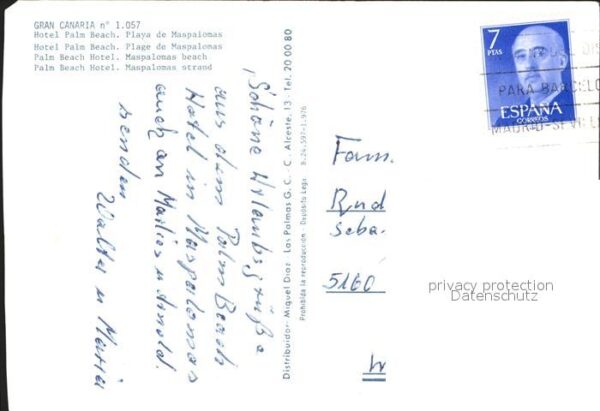 GRAN CANARIA nº 1.057
Hotel Palm Beach. Playa de Maspalomas
Hotel Palm Beach. Plage de Maspalomas
Palm Beach Hotel. Maspalomas beach
Palm Beach Hotel. Maspalomas strand
Schöne Urlaubsgrüße
aus dem Palm Beach
Hotel in Maspalomas
auch an Marlies u Arnold.
senden
Walter u Maria
Distribuidor: Miguel Diaz - Las Palmas G. C. - C. Alceste, 13 - Tel. 20 00 80
Prohibida la reproducción - Depósito Lega B.24.597-1.976
7
PTAS
ESPAÑA
CORREOS
PARA BARCELO
MADRID-SEVILL
Fam.
Rud
Seba.
5160
privacy protection
Datenschutz